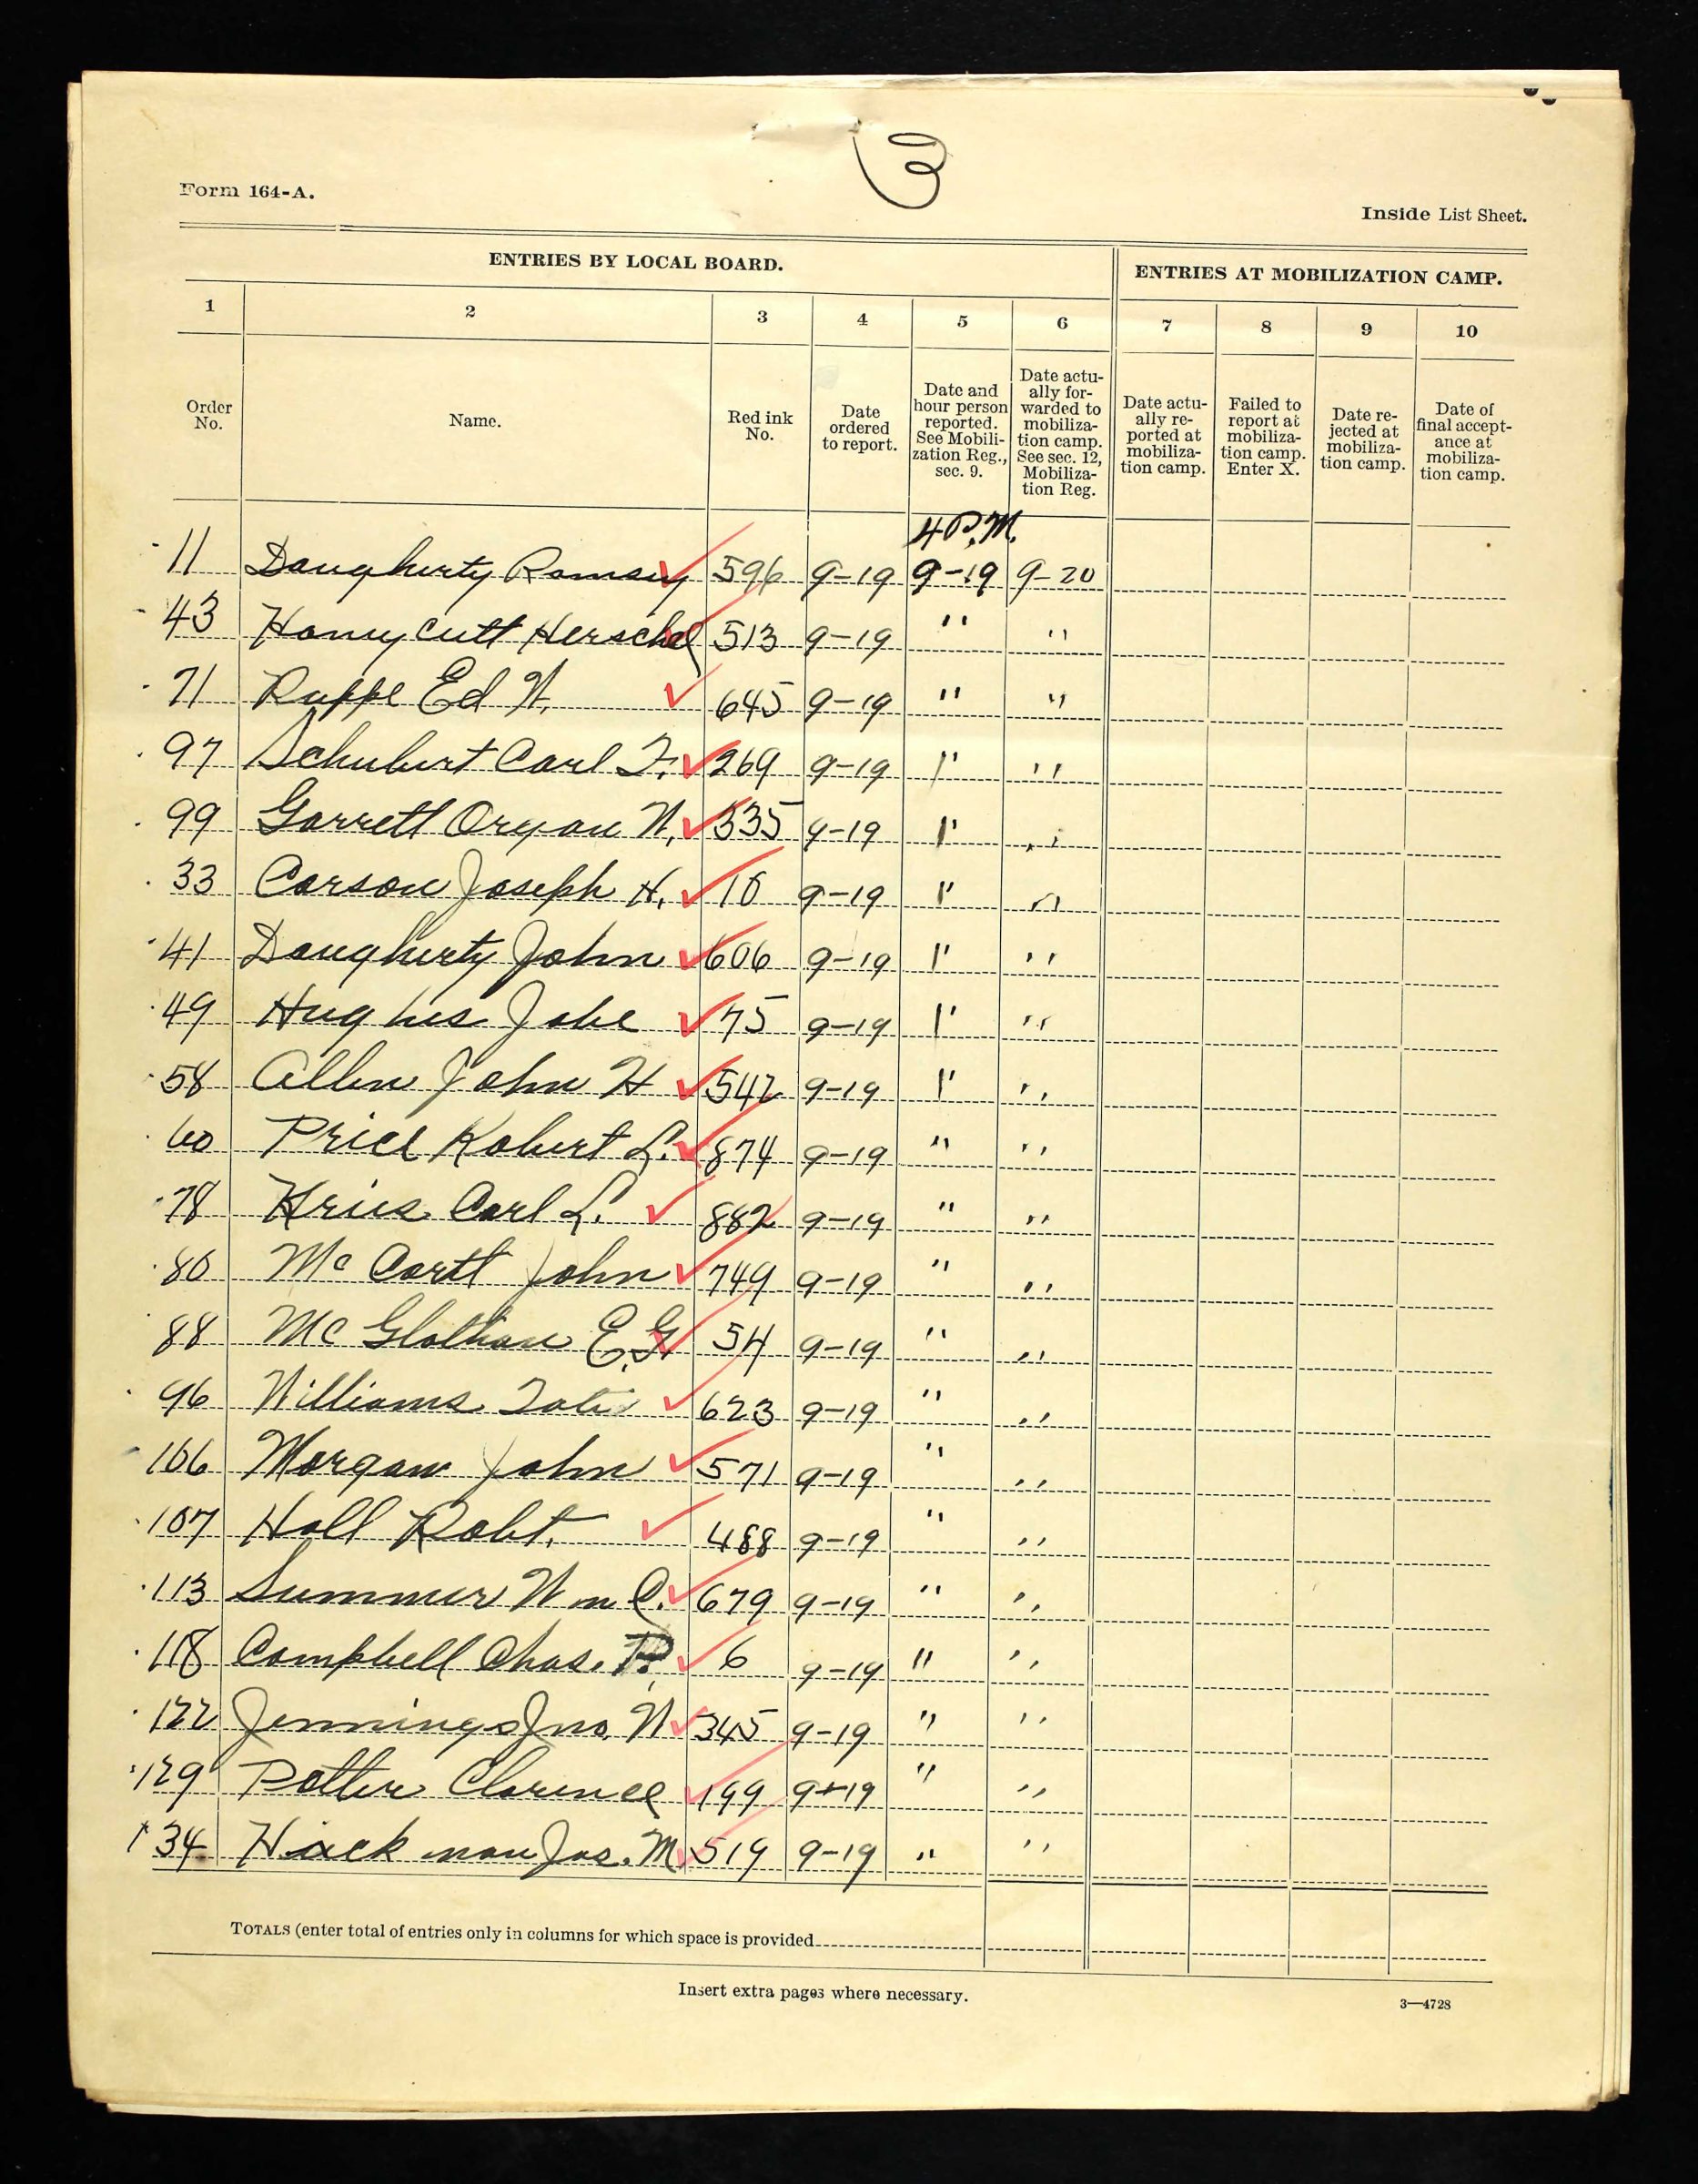 3
Form 164-A.
Inside List Sheet.
ENTRIES BY LOCAL BOARD. ENTRIES AT MOBILIZATION CAMP.
1 2 3 4 5 6 7 8 9 10
Order No.
Name.
Red ink No.
Date ordered to report.
Date and hour person reported. See Mobilization Reg., sec. 9.
Date actually forwarded to mobilization camp. See sec. 12, Mobilization Reg.
Date actually reported at mobilization camp.
Failed to report at mobilization camp. Enter X.
Date rejected at mobilization camp.
Date of final acceptance at mobilization camp.
4 P.M.
11 Daugherty Ramsey 596 9-19 9-19 9-20
43 Honeycutt Herschel 513 9-19 " "
71 Ruppe Ed W. 645 9-19 " "
97 Schubert Carl F. 269 9-19 " "
99 Garrett Oryan W. 335 9-19 " "
33 Carson Joseph H. 10 9-19 " "
41 Daugherty John 606 9-19 " "
49 Hughes Jobe 75 9-19 " "
58 Allen John H 542 9-19 " "
60 Price Robert L. 874 9-19 " "
78 Kries Carl L. 882 9-19 " "
80 McCartt John 749 9-19 " "
88 McGlothan E.G. 54 9-19 " "
96 Williams Tate 623 9-19 " "
106 Morgan John 571 9-19 " "
107 Hall Robt. 488 9-19 " "
113 Summer Wm. C. 679 9-19 " "
118 Campbell Chas. P. 6 9-19 " "
122 Jennings Jno. W 345 9-19 " "
129 Potter Clarence 199 9-19 " "
134 Hackman Jas. M. 519 9-19 " "
TOTALS (enter total of entries only in columns for which space is provided
Insert extra pages where necessary.
3—4728